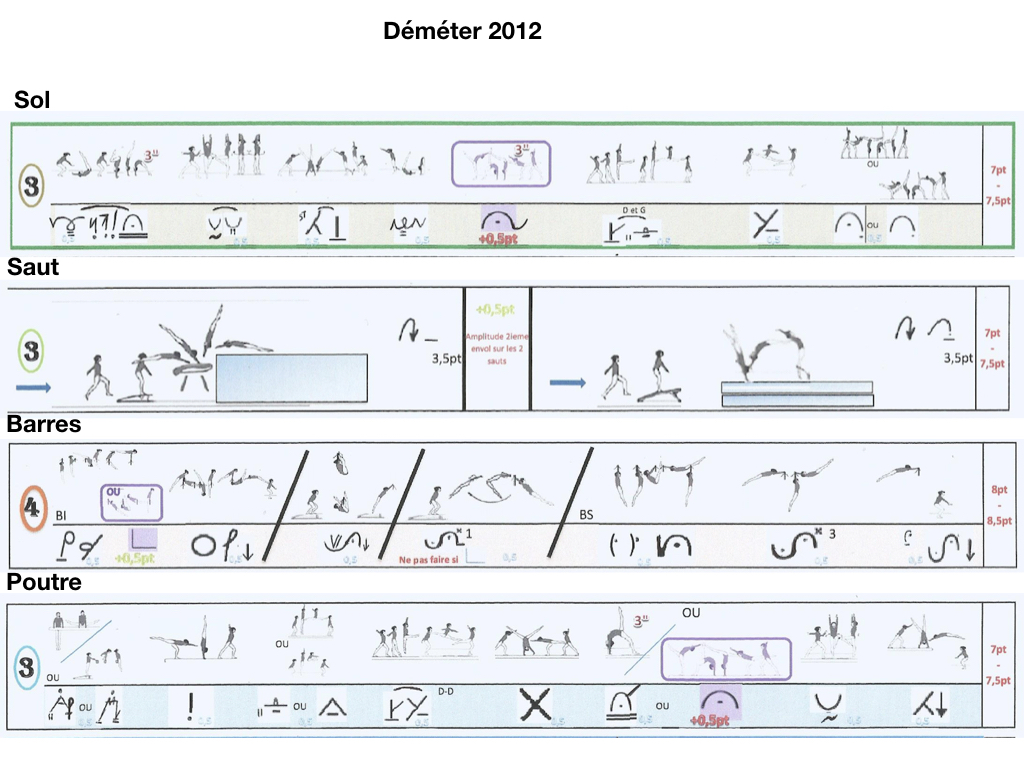 Déméter 2012
Sol
3
3"
3"
OU
7pt
-
7,5pt
D et G
OU
0,5 0,5 0,5 0,5 +0,5pt 0,5 0,5 0,5
Saut
3
3,5pt
+0,5pt
Amplitude 2ieme
envol sur les 2
sauts
3,5pt
7pt
-
7,5pt
Barres
4
OU
BI
+0,5pt
0,5 0,5 0,5
x 1
Ne pas faire si
0,5
BS
x 3
0,5 0,5 0,5
8pt
-
8,5pt
Poutre
3
OU
OU
3"
OU
7pt
-
7,5pt
OU
!
OU
D-D
OU
+0,5pt
0,5 0,5 0,5 0,5 0,5 0,5 0,5 0,5